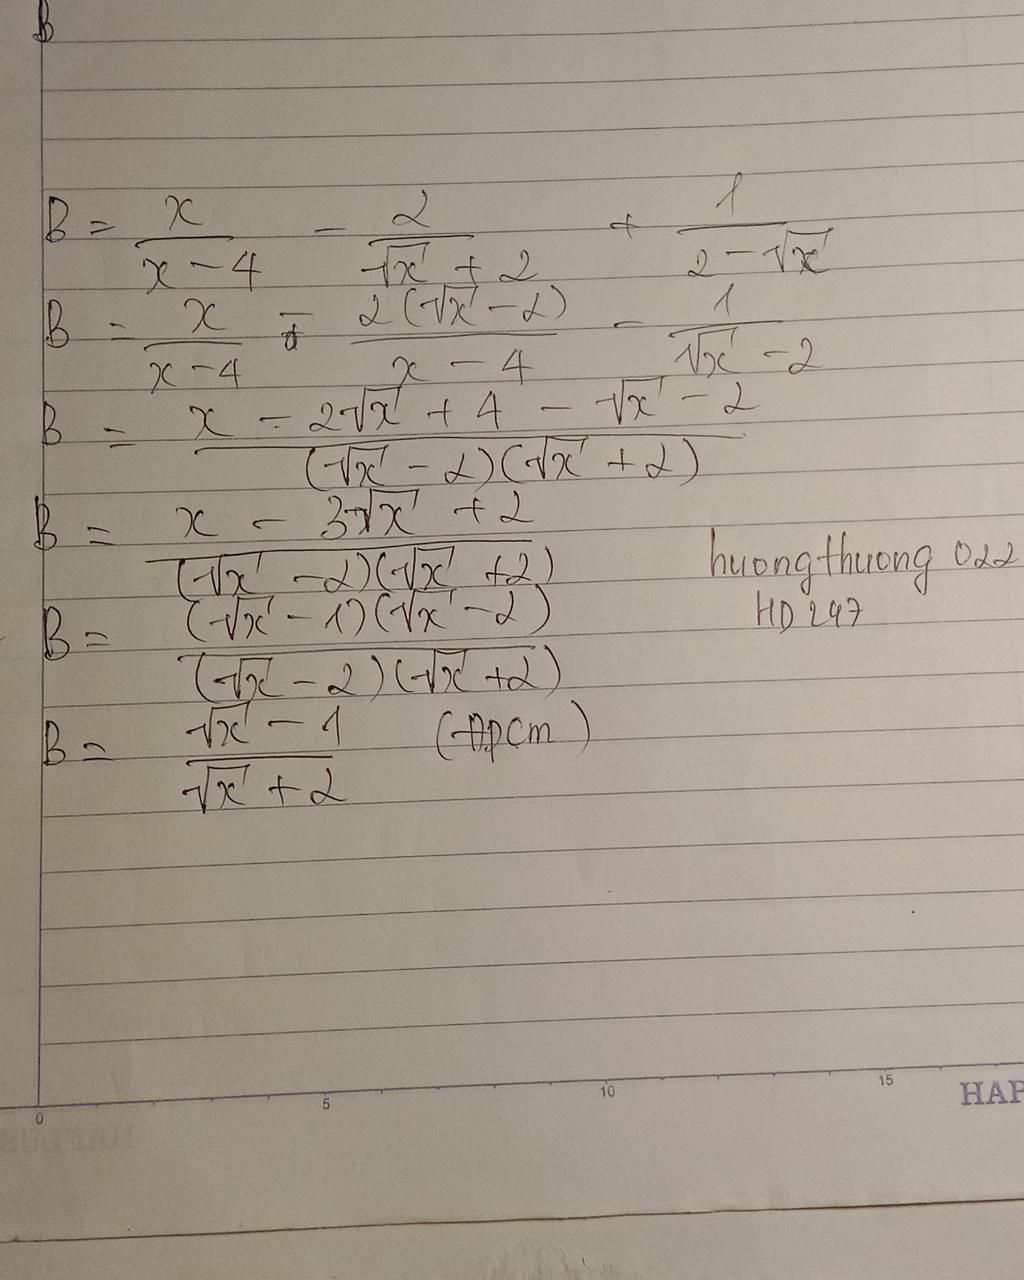 B
B = x/(x - 4) - 2/(√x + 2) + 1/(2 - √x)
B = x/(x - 4) - 2(√x - 2)/(x - 4) - 1/(√x - 2)
B = (x - 2√x + 4 - √x - 2)/((√x - 2)(√x + 2))
B = (x - 3√x + 2)/((√x - 2)(√x + 2))
huongthuong 022
HD 247
B = (√x - 1)(√x - 2)/((√x - 2)(√x + 2))
B = (√x - 1)/(√x + 2) (Đpcm)
0 5 10 15
HAP